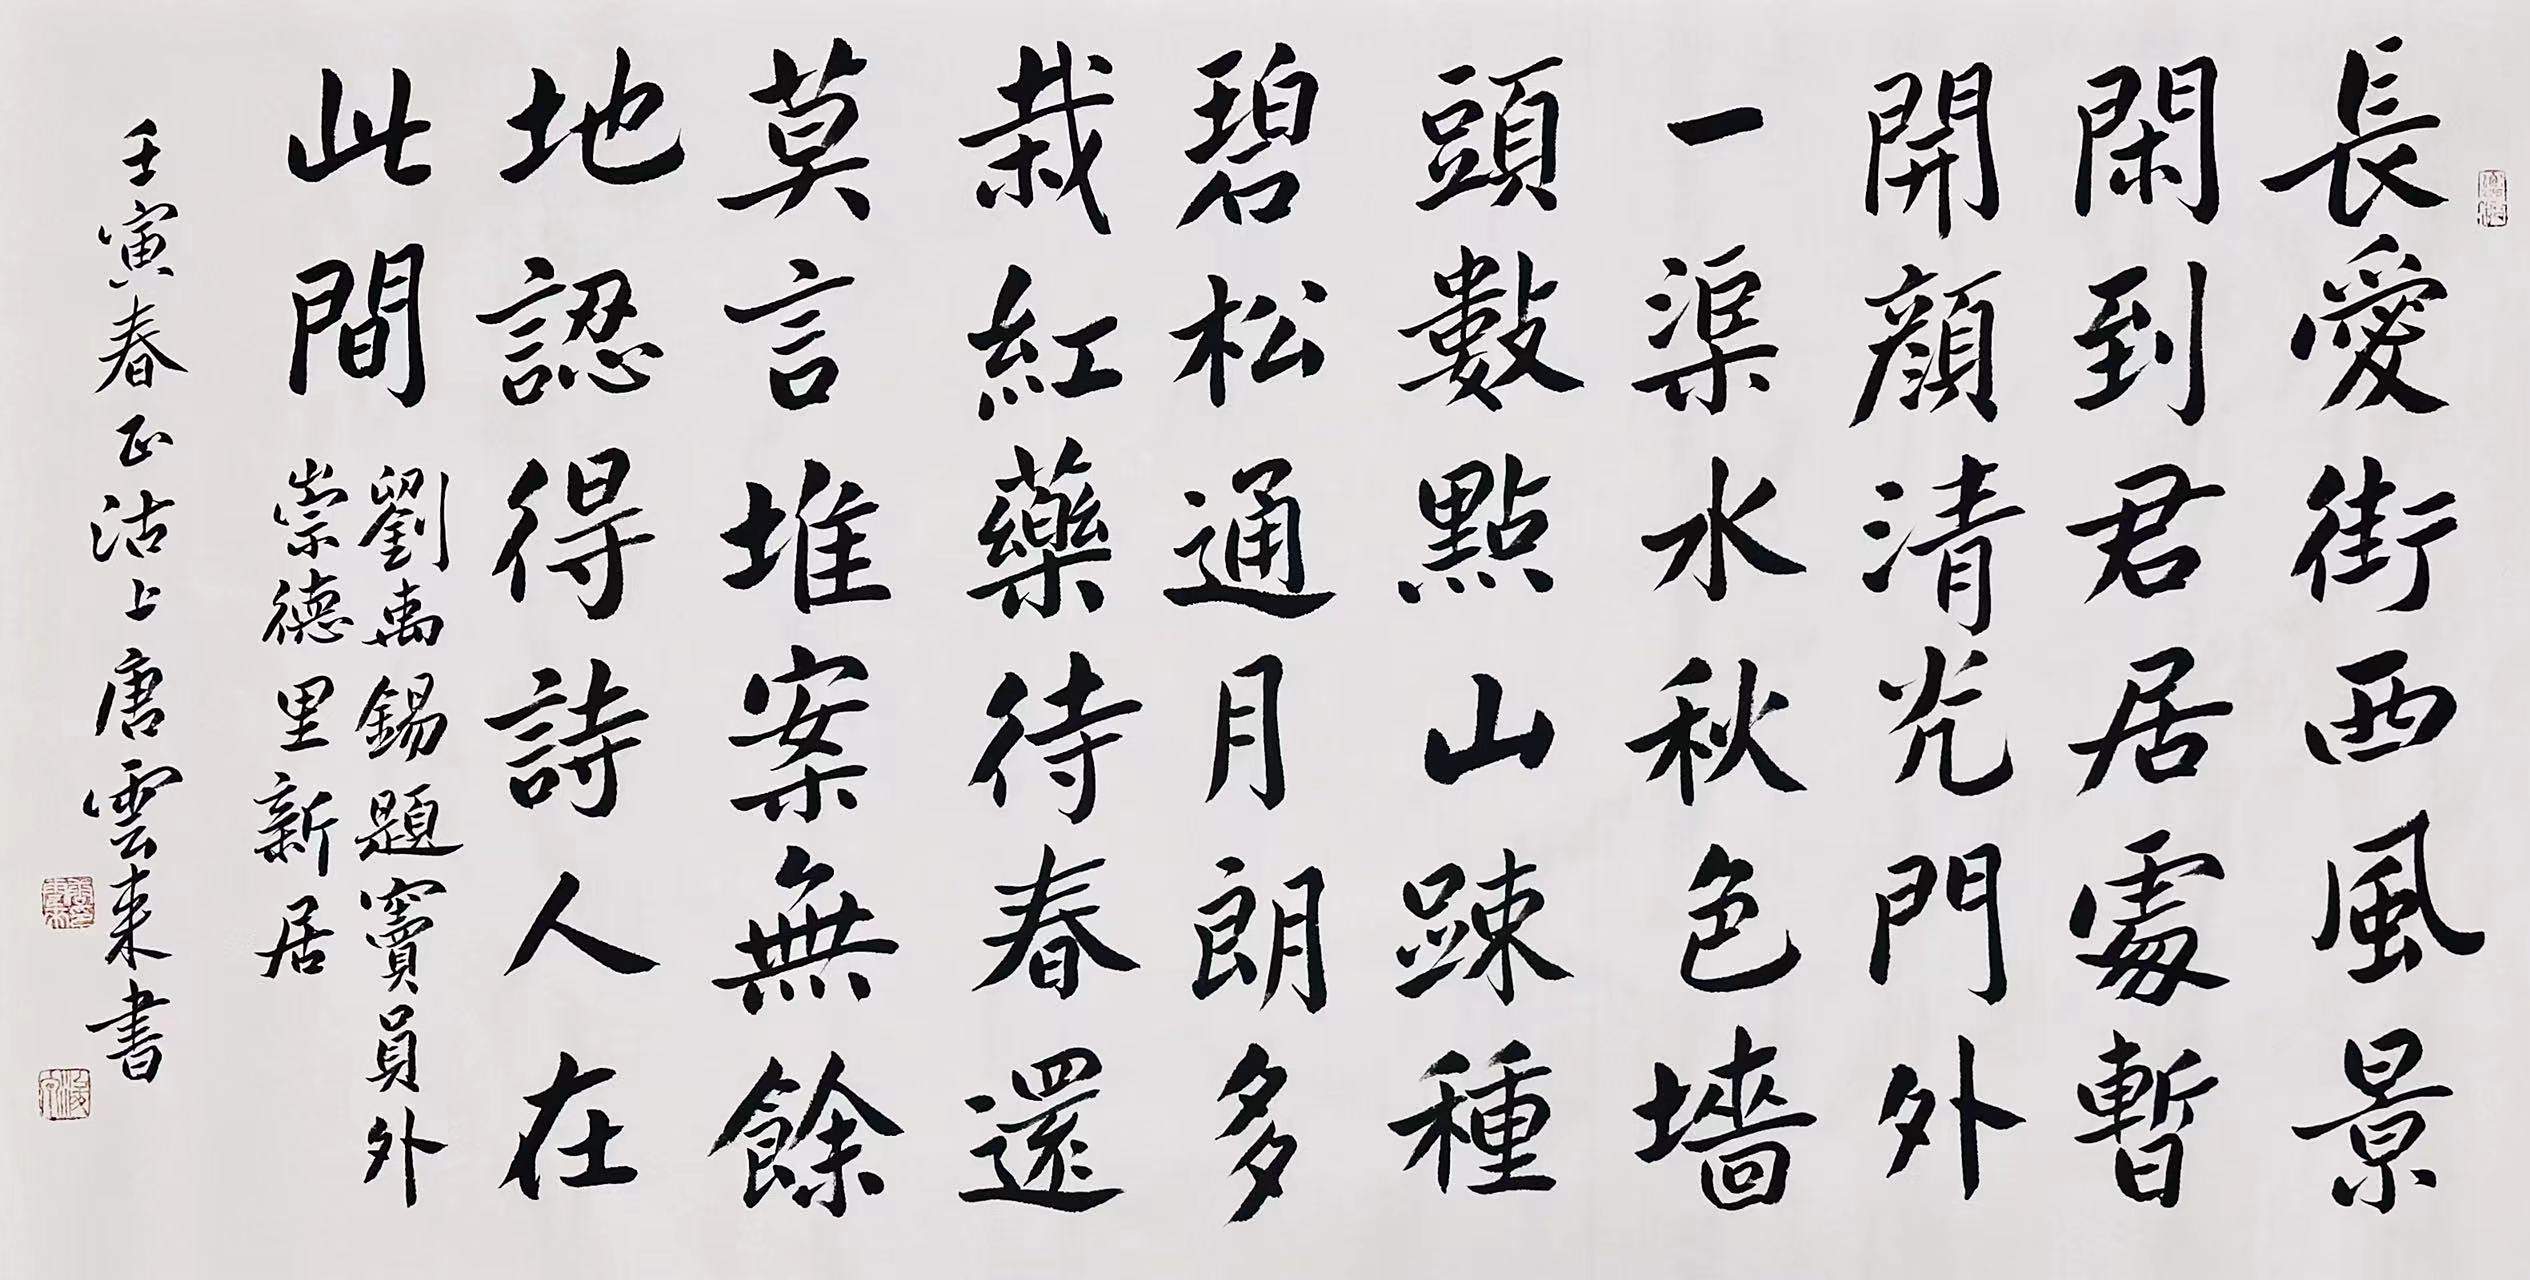 長愛街西風景
閑到君居處暫
開顏清光門外
一渠水秋色墻
頭數點山疎種
碧松通月朗多
栽紅藥待春還
莫言堆案無餘
地認得詩人在
此間
劉禹錫題竇員外
崇德里新居
壬寅春正沽上唐雲来書